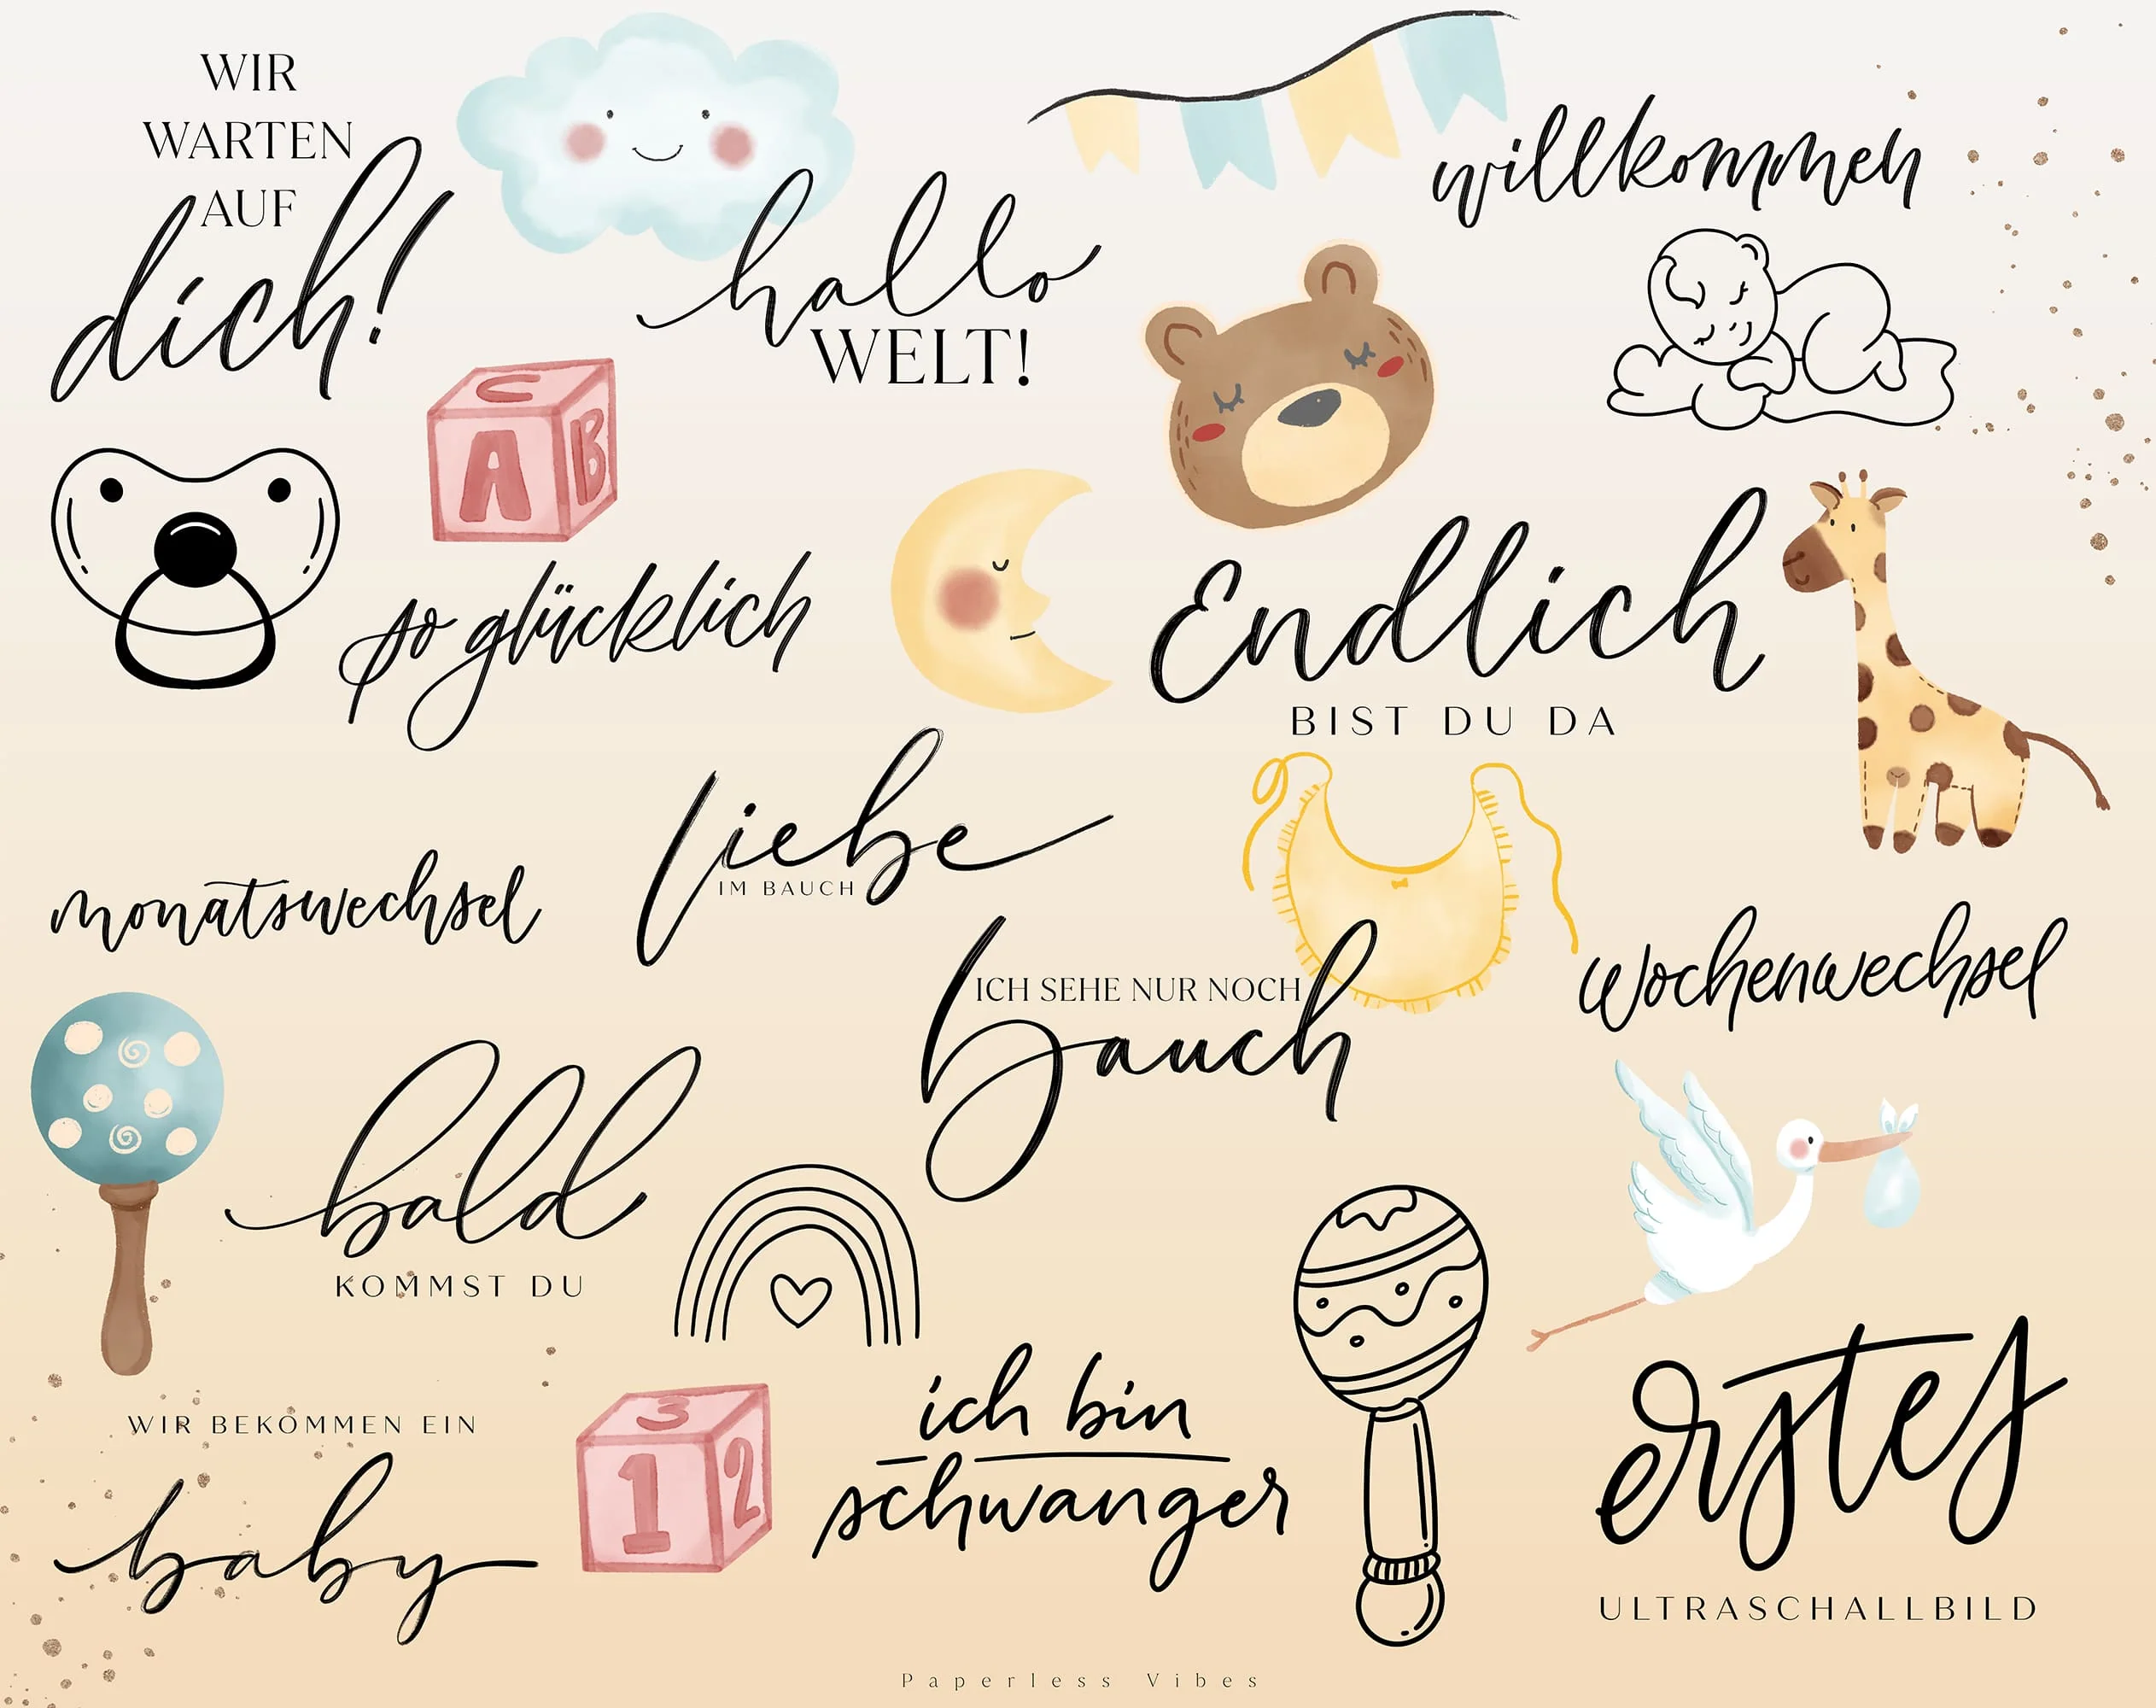 WIR
WARTEN
AUF
dich!
hallo
WELT!
willkommen
C
A B
so glücklich
Endlich
BIST DU DA
liebe
IM BAUCH
monatswechsel
ICH SEHE NUR NOCH
bauch
wochenwechsel
bald
KOMMST DU
WIR BEKOMMEN EIN
baby
3
1 2
ich bin
schwanger
erstes
ULTRASCHALLBILD
Paperless Vibes